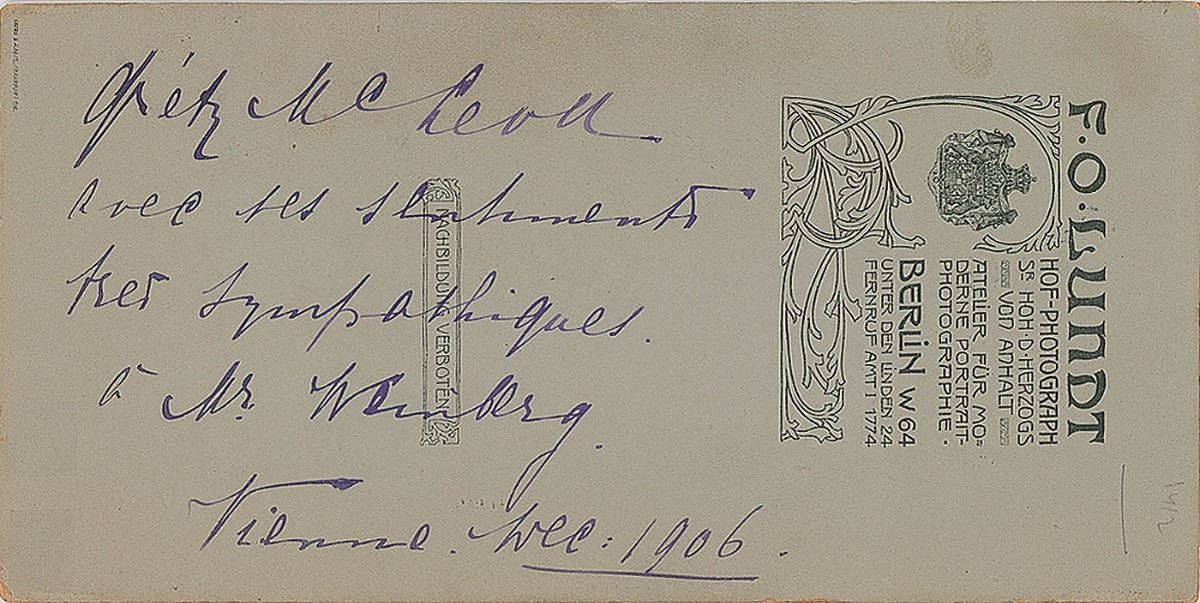 Mc Leod
avec ses sentiments
tres sympathiques.
à Mr. Weinberg.
Vienne. Dec: 1906.
NACHBILDUNG VERBOTEN
F.O.LUNDT
HOF-PHOTOGRAPH
SR HOH.D.HERZOGS
VON ANHALT
ATELIER FÜR MO=
DERNE PORTRAIT-
PHOTOGRAPHIE.
BERLIN W 64
UNTER DEN LINDEN 24
FERNRUF AMT I 1774